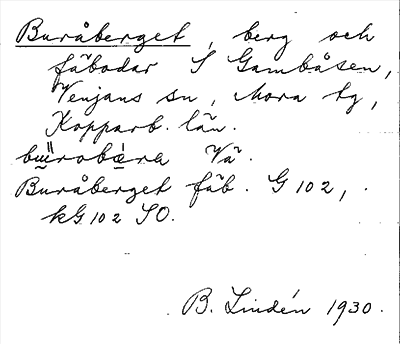 Buråberget, berg och
fäbodar S Gambåsen,
Venjans sn, Mora tg,
Kopparb. län.
Vä.
Buråberget fäb. G 102,
kG 102 SO.
B. Lindén 1930.